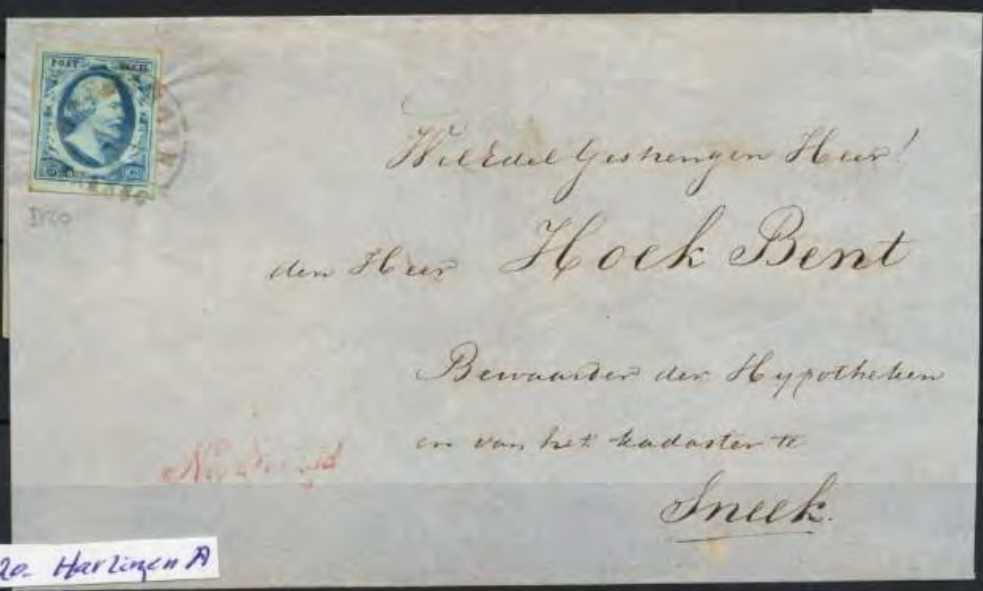 POST
ZEGEL
FRANCO
D20
WelEdel Gestrengen Heer!
den Heer Hoek Bent
Bewaarder der Hypotheken
en van het Kadaster te
Sneek.
20- Harlingen A